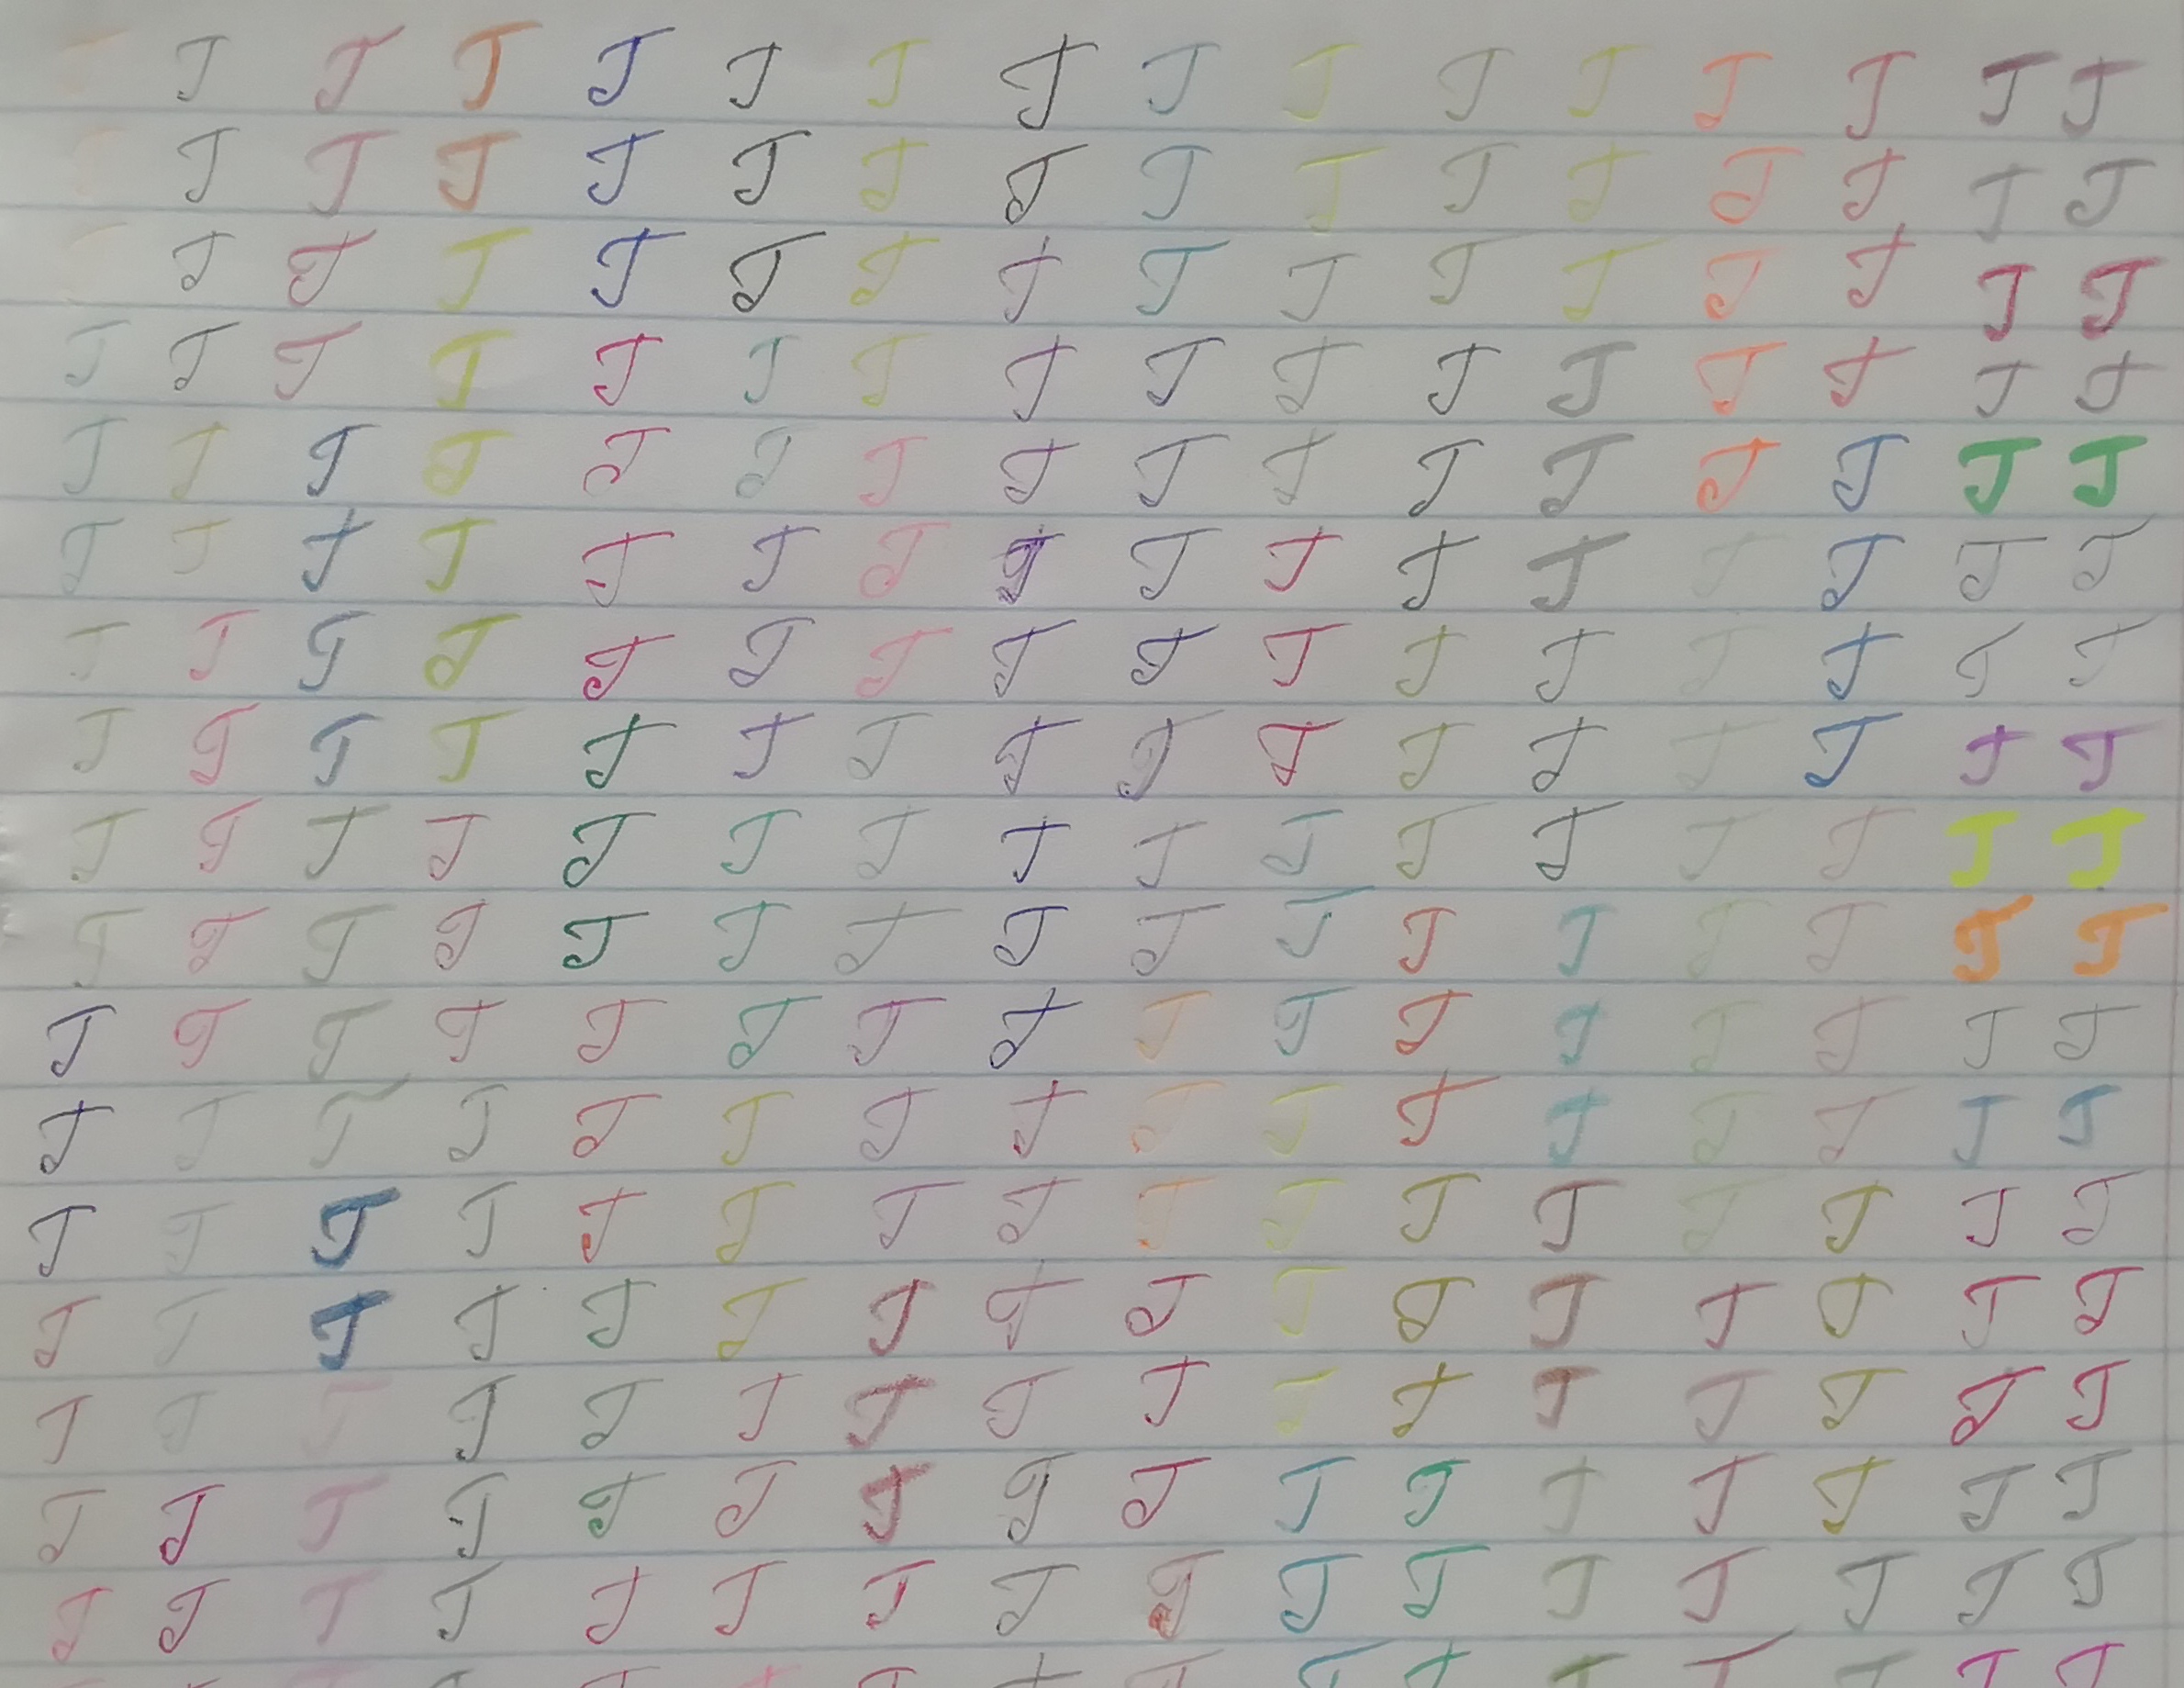 J J J J J J J J J J J J J J J J
J J J J J J J J J J J J J J J J
J J J J J J J J J J J J J J J J
J J J J J J J J J J J J J J J J
J J J J J J J J J J J J J J J J
J J J J J J J J J J J J J J J J
J J J J J J J J J J J J J J J J
J J J J J J J J J J J J J J J J
J J J J J J J J J J J J J J J J
J J J J J J J J J J J J J J J J
J J J J J J J J J J J J J J J J
J J J J J J J J J J J J J J J J
J J J J J J J J J J J J J J J J
J J J J J J J J J J J J J J J J
J J J J J J J J J J J J J J J J
J J J J J J J J J J J J J J J J
J J J J J J J J J J J J J J J J